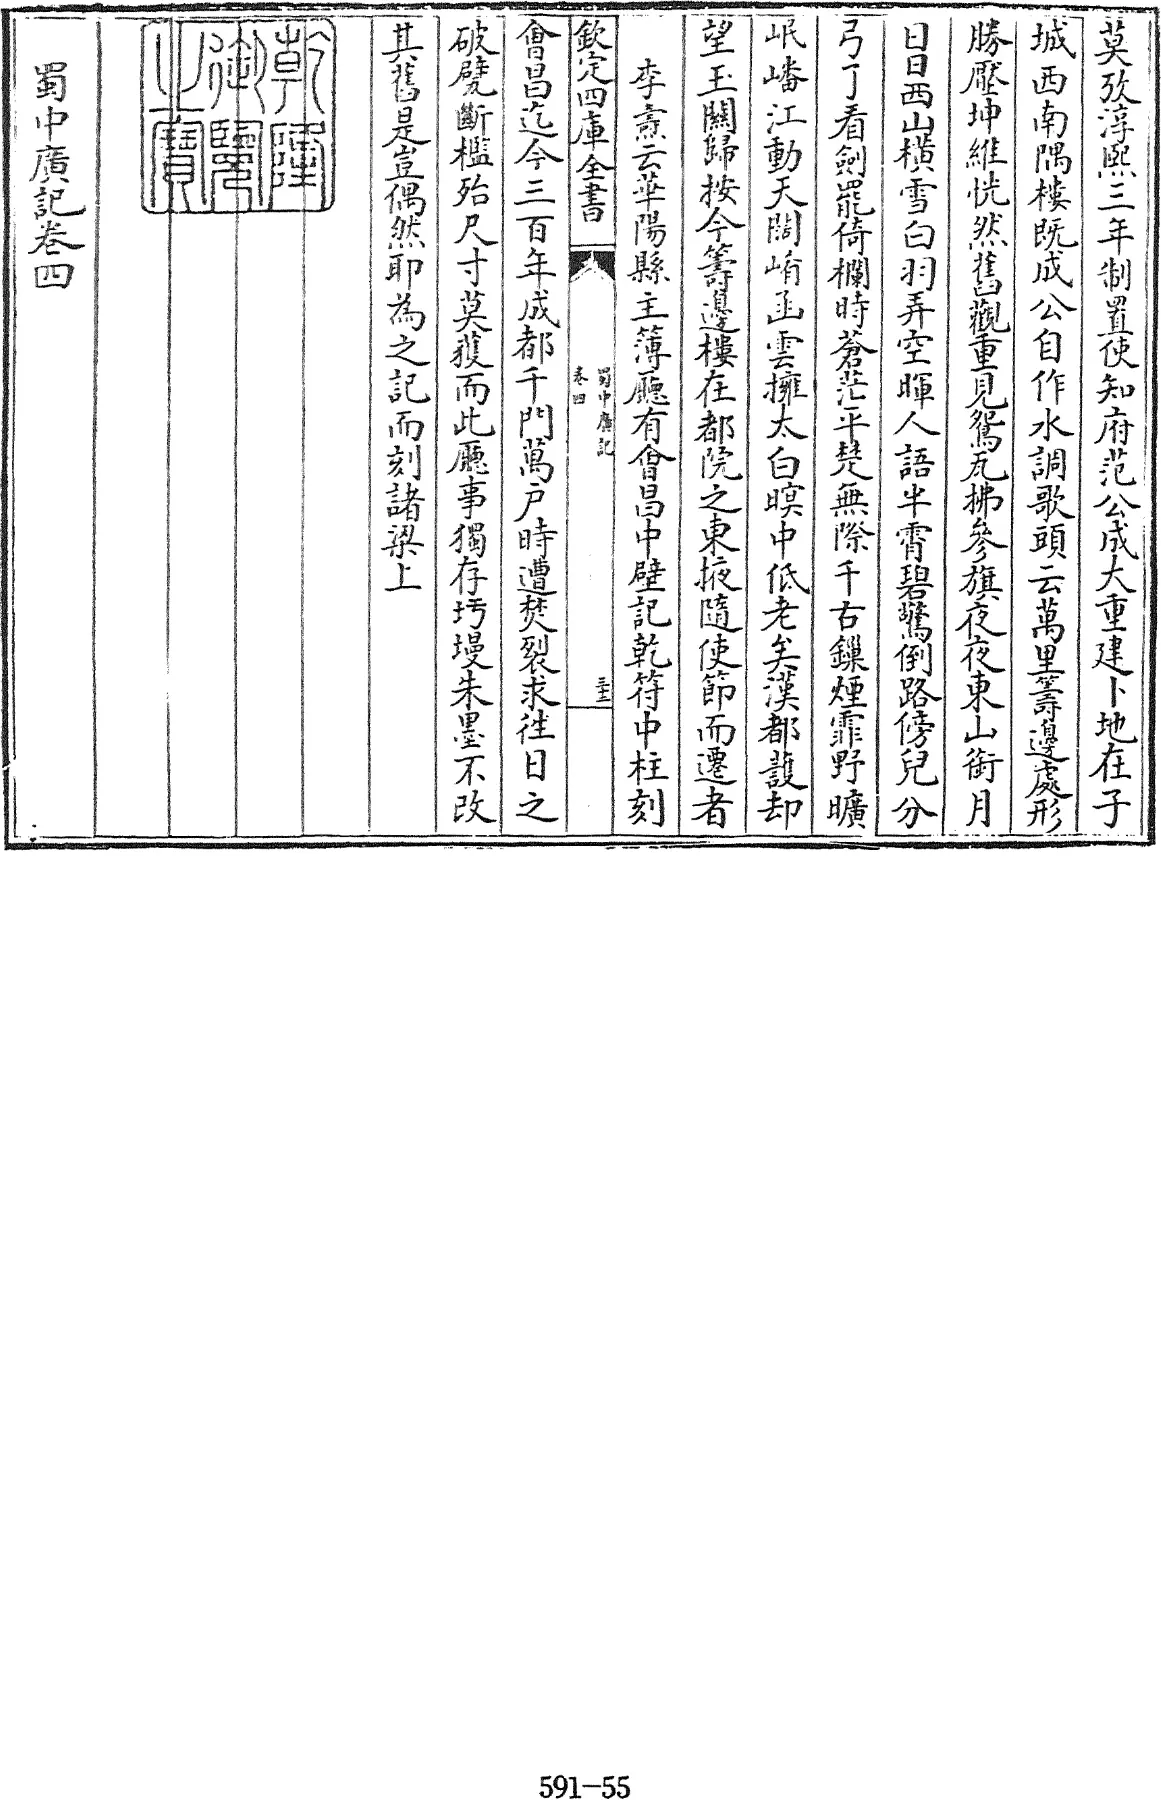 莫攷淳熙三年制置使知府范公成大重建卜地在子
城西南隅樓既成公自作水調歌頭云萬里籌邊處形
勝壓坤維恍然舊觀重見鴛瓦拂參旗夜夜東山銜月
日日西山橫雪白羽弄空暉人語半霄碧驚倒路傍兒分
弓了看劍罷倚欄時蒼茫平楚無際千古鏁煙霏野曠
岷嶓江動天闊崤函雲擁太白暝中低老矣漢都護却
望玉關歸按今籌邊樓在都院之東掖隨使節而遷者
李燾云華陽縣主薄廳有會昌中壁記乾符中柱刻
欽定四庫全書
蜀中廣記
卷四
三十三
會昌迄今三百年成都千門萬戶時遭焚裂求往日之
破甓斷檻殆尺寸莫獲而此廳事獨存圬墁朱墨不改
其舊是豈偶然耶為之記而刻諸梁上
乾隆
御覽
之寶
蜀中廣記卷四
591-55